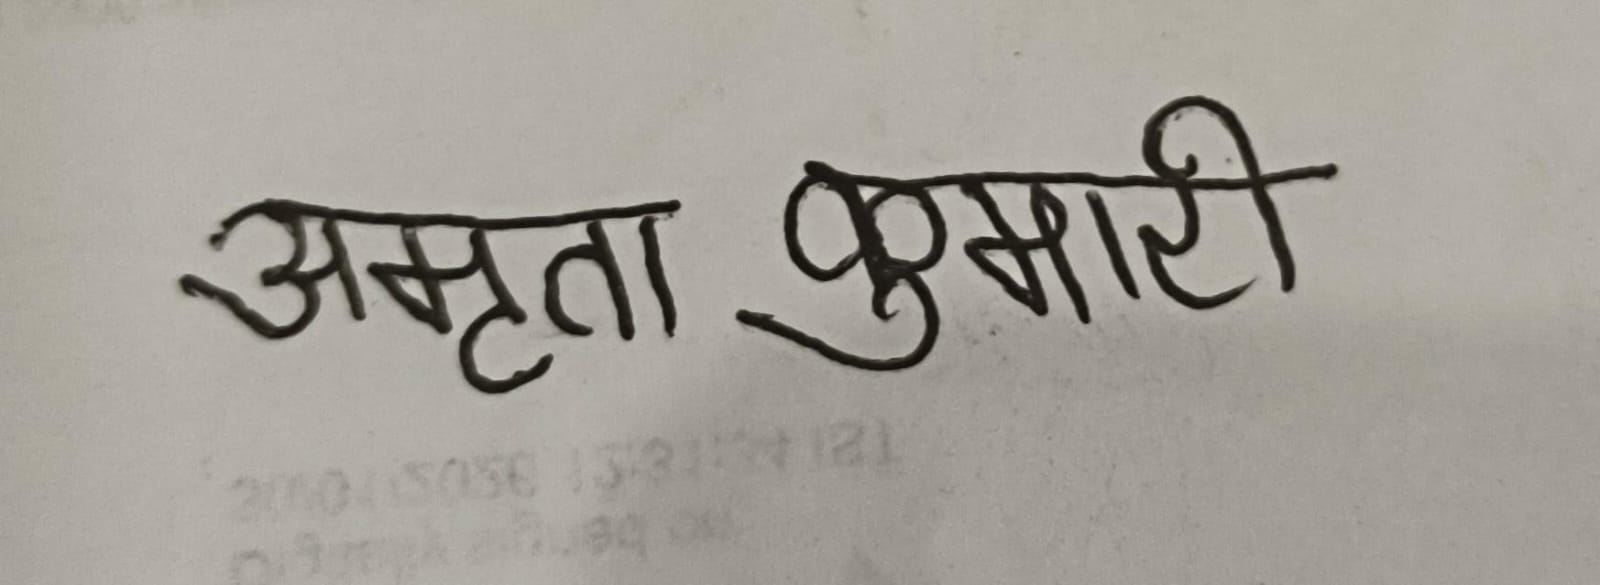 अमृता कुमारी